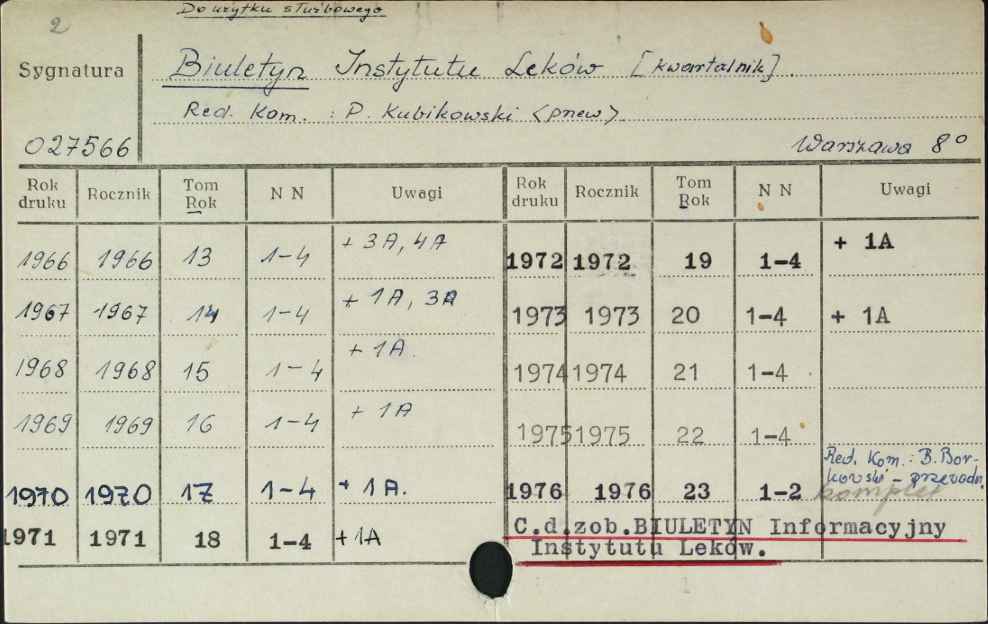 2
Do użytku służbowego
Sygnatura
Biuletyn Instytutu Leków [kwartalnik].
Red. Kom. : P. Kubikowski <pnew>
027566
Warszawa 8°
Rok druku Rocznik Tom Rok N N Uwagi Rok druku Rocznik Tom Rok N N Uwagi
1966 1966 13 1-4 + 3A, 4A 1972 1972 19 1-4 + 1A
1967 1967 14 1-4 + 1A, 3A 1973 1973 20 1-4 + 1A
1968 1968 15 1-4 + 1A. 1974 1974 21 1-4
1969 1969 16 1-4 + 1A 1975 1975 22 1-4
1970 1970 17 1-4 + 1A. 1976 1976 23 1-2 Red. Kom.: B. Bor-
kowski - przewodn.
komplet
1971 1971 18 1-4 +1A C.d.zob.BIULETYN Informacyjny
Instytutu Leków.